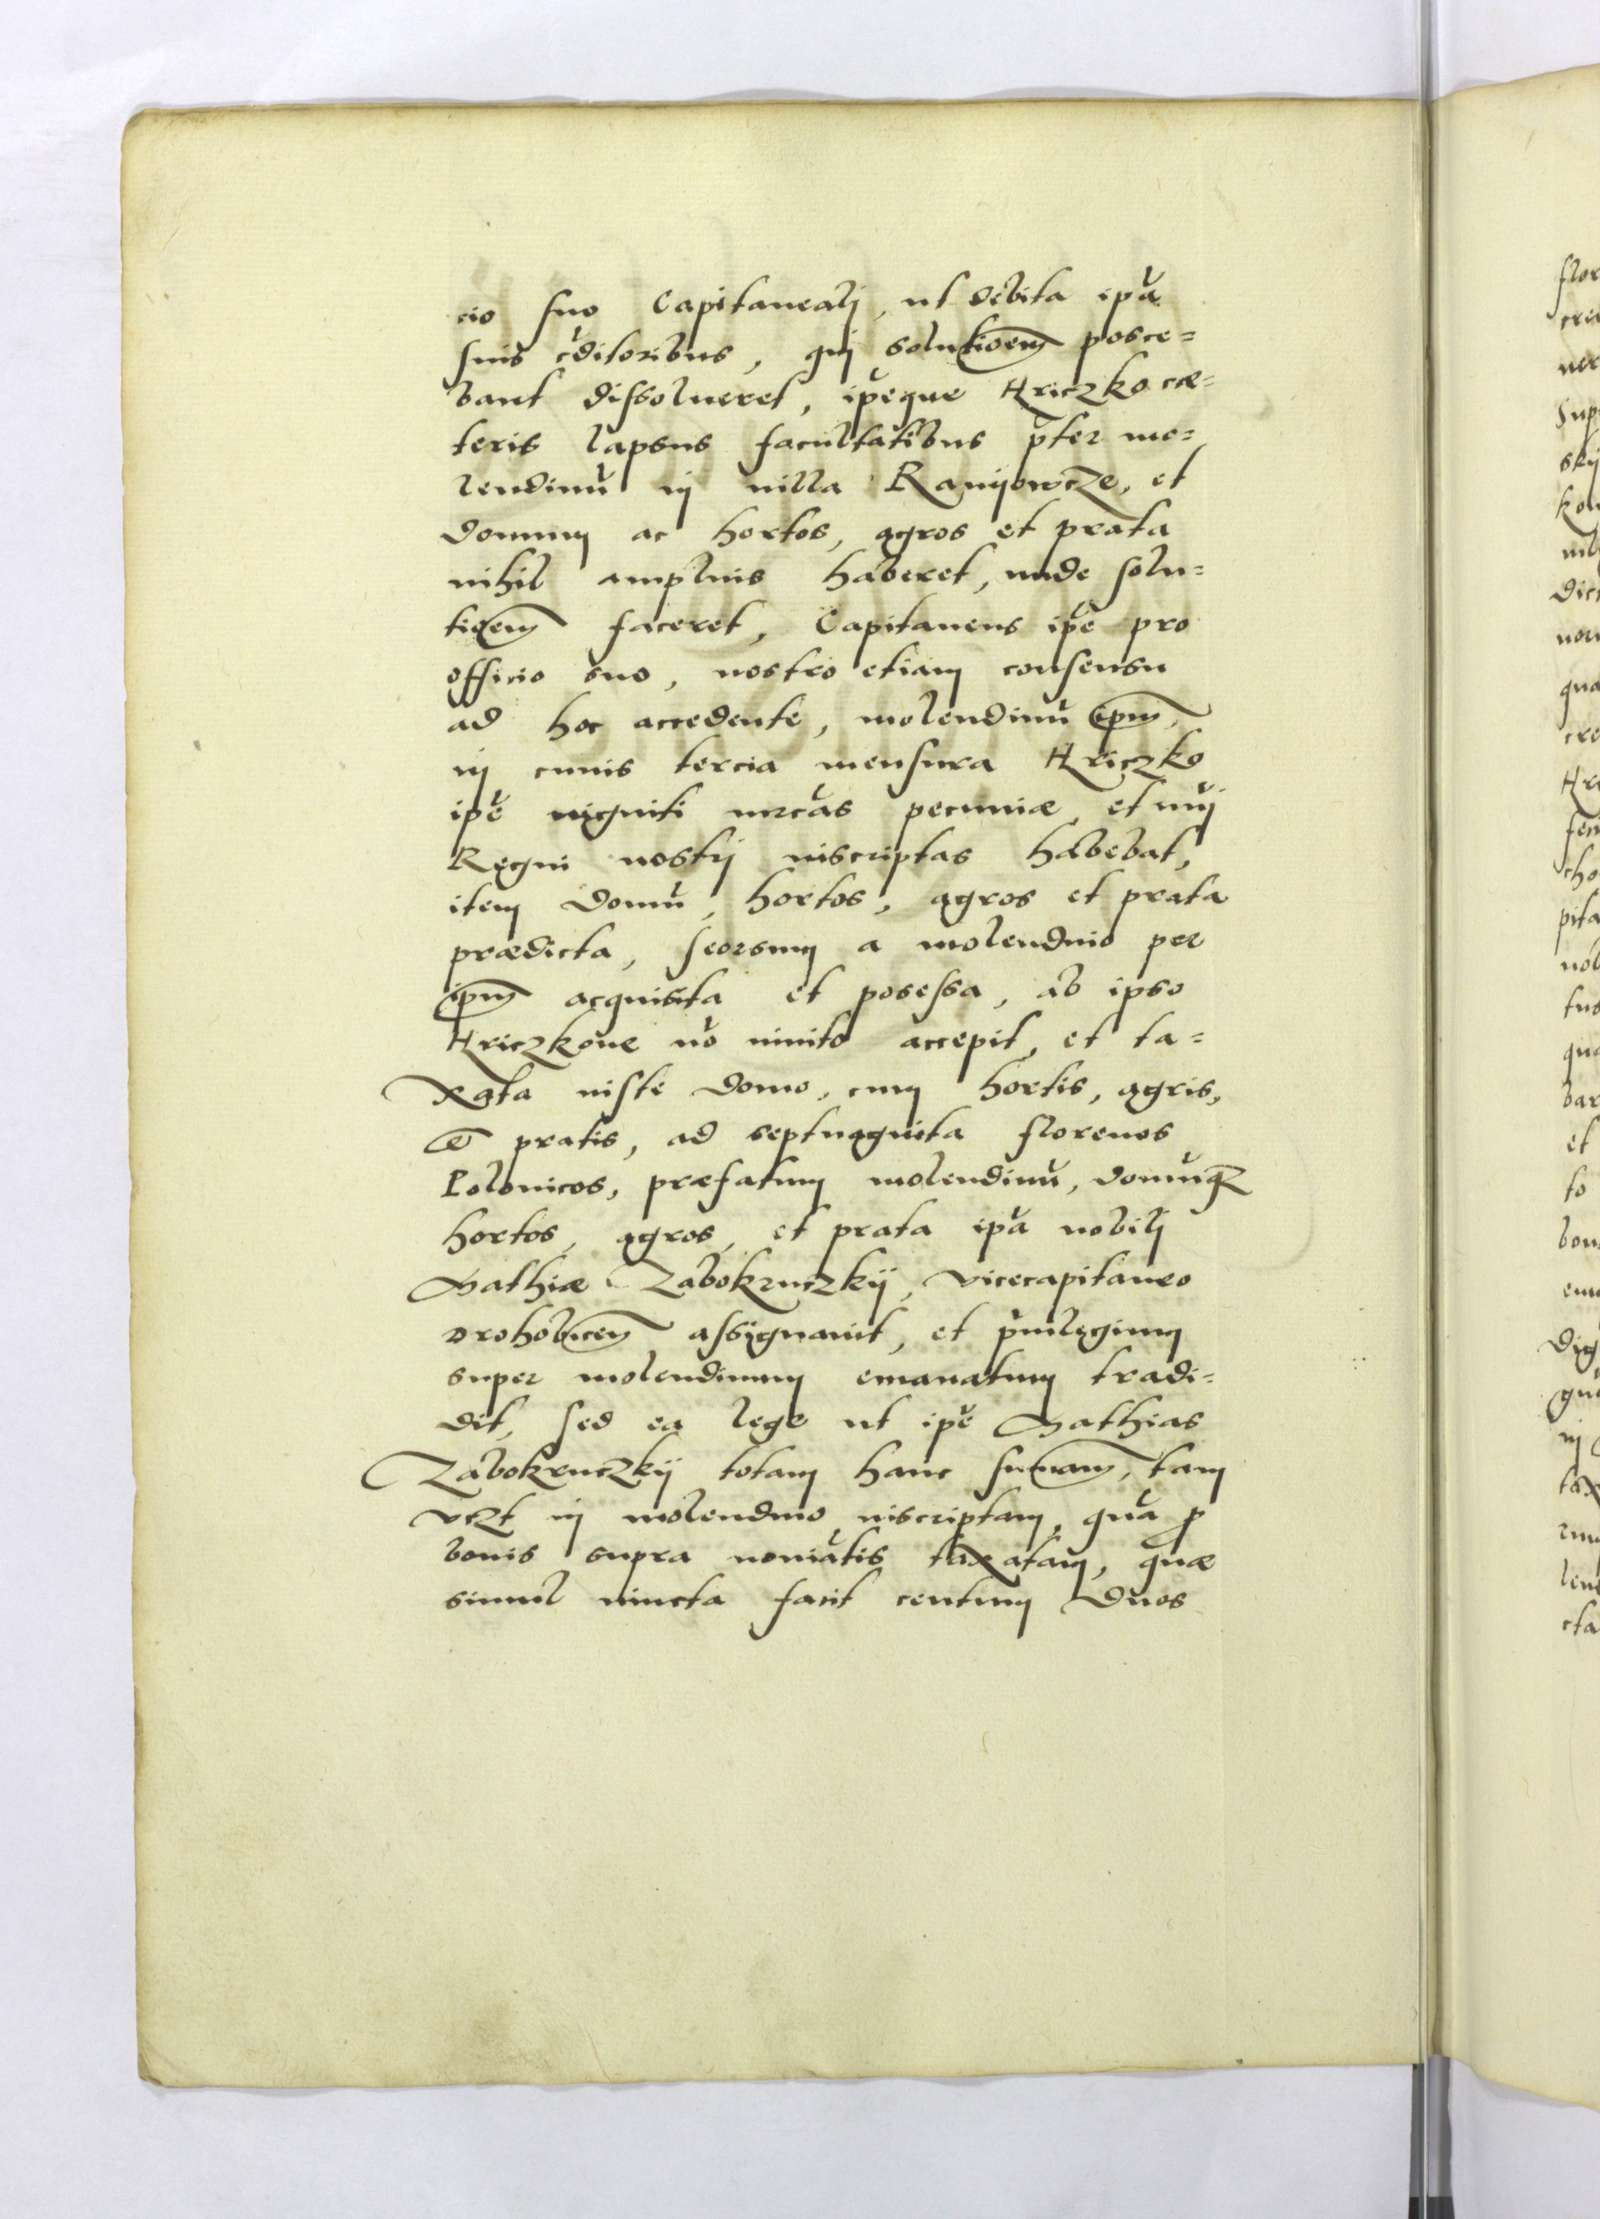 cio suo Capitaneali, ut debita ipa
suis cditoribus, qui solutioem posce=
bant dissolueret, ipeque Hriczko cæ=
teris lapsus facultatibus pter mo=
lendinu in uilla Ranijowcze, et
domum ac hortos, agros et prata
nihil amplius haberet, unde solu=
tioem faceret, Capitaneus ipe pro
officio suo, nostro etiam consensu
ad hoc accedente, molendinu ipm,
in cuius tercia mensura Hriczko
ipe uiginti mrcas pecuniæ et nui
Regni nostri inscriptas habebat,
item domu, hortos, agros et prata
prædicta, seorsum a molendino per
ipm acquisita et posessa, ab ipso
Hriczkone no inuito accepit, et ta=
xata iuste domo, cum hortis, agris,
et pratis, ad septuaginta florenos
Polonicos, præfatum molendinu, domuq
hortos, agros, et prata ipa nobili
Mathiæ Zabokruczkij, vicecapitaneo
Drohobicen assignauit, et priuilegium
super molendinum emanatum tradi=
dit, sed ea lege ut ipe Mathias
Zabokruczkij totam hanc sumam, tam
vczt in molendino inscriptam, qua p
bonis supra noniatis taxatam, quæ
simul iuncta facit centum duos